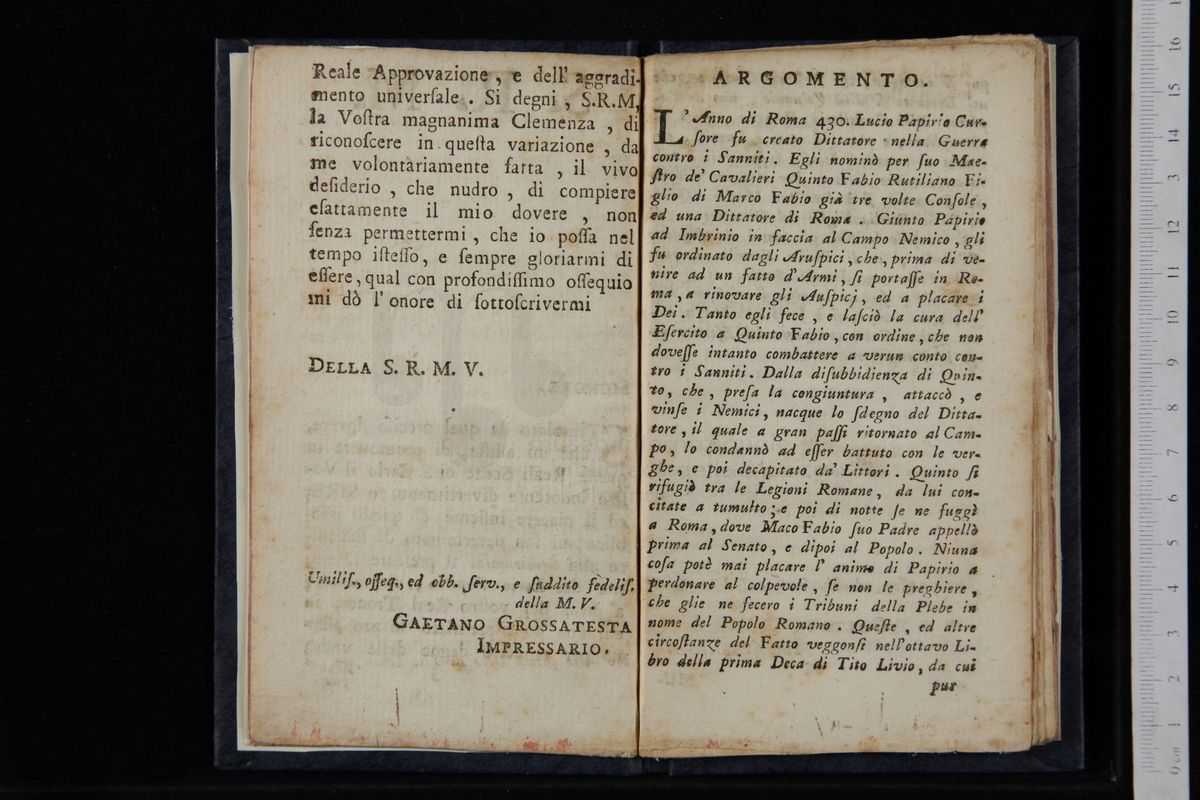 Reale Approvazione, e dell' aggradi-
mento univerſale. Si degni, S.R.M,
la Voſtra magnanima Clemenza, di
riconoſcere in queſta variazione, da
me volontariamente fatta, il vivo
deſiderio, che nudro, di compiere
eſattamente il mio dovere, non
ſenza permettermi, che io poſſa nel
tempo iſteſſo, e ſempre gloriarmi di
eſſere, qual con profondiſſimo oſſequio
mi dò l' onore di ſottoſcrivermi
DELLA S. R. M. V.
Umiliſ., oſſeq., ed obb. ſerv., e ſuddito fedeliſ.
della M. V.
GAETANO GROSSATESTA
IMPRESSARIO.
ARGOMENTO.
L'Anno di Roma 430. Lucio Papirio Cur-
ſore fu creato Dittatore nella Guerra
contro i Sanniti. Egli nominò per ſuo Mae-
ſtro de' Cavalieri Quinto Fabio Rutiliano Fi-
glio di Marco Fabio già tre volte Conſole,
ed una Dittatore di Roma. Giunto Papirio
ad Imbrinio in faccia al Campo Nemico, gli
fu ordinato dagli Aruſpici, che, prima di ve-
nire ad un fatto d'Armi, ſi portaſſe in Ro-
ma, a rinovare gli Auſpicj, ed a placare i
Dei. Tanto egli fece, e laſciò la cura dell'
Eſercito a Quinto Fabio, con ordine, che non
doveſſe intanto combattere a verun conto con-
tro i Sanniti. Dalla diſubbidienza di Quin-
to, che, preſa la congiuntura, attaccò, e
vinſe i Nemici, nacque lo ſdegno del Ditta-
tore, il quale a gran paſſi ritornato al Cam-
po, lo condannò ad eſſer battuto con le ver-
ghe, e poi decapitato da' Littori. Quinto ſi
rifugiò tra le Legioni Romane, da lui con-
citate a tumulto; e poi di notte ſe ne fuggì
a Roma, dove Maco Fabio ſuo Padre appellò
prima al Senato, e dipoi al Popolo. Niuna
coſa potè mai placare l' animo di Papirio a
perdonare al colpevole, ſe non le preghiere,
che glie ne fecero i Tribuni della Plebe in
nome del Popolo Romano. Queſte, ed altre
circoſtanze del Fatto veggonſi nell'ottavo Li-
bro della prima Deca di Tito Livio, da cui
pur
0 cm 1 2 3 4 5 6 7 8 9 10 11 12 13 14 15 16